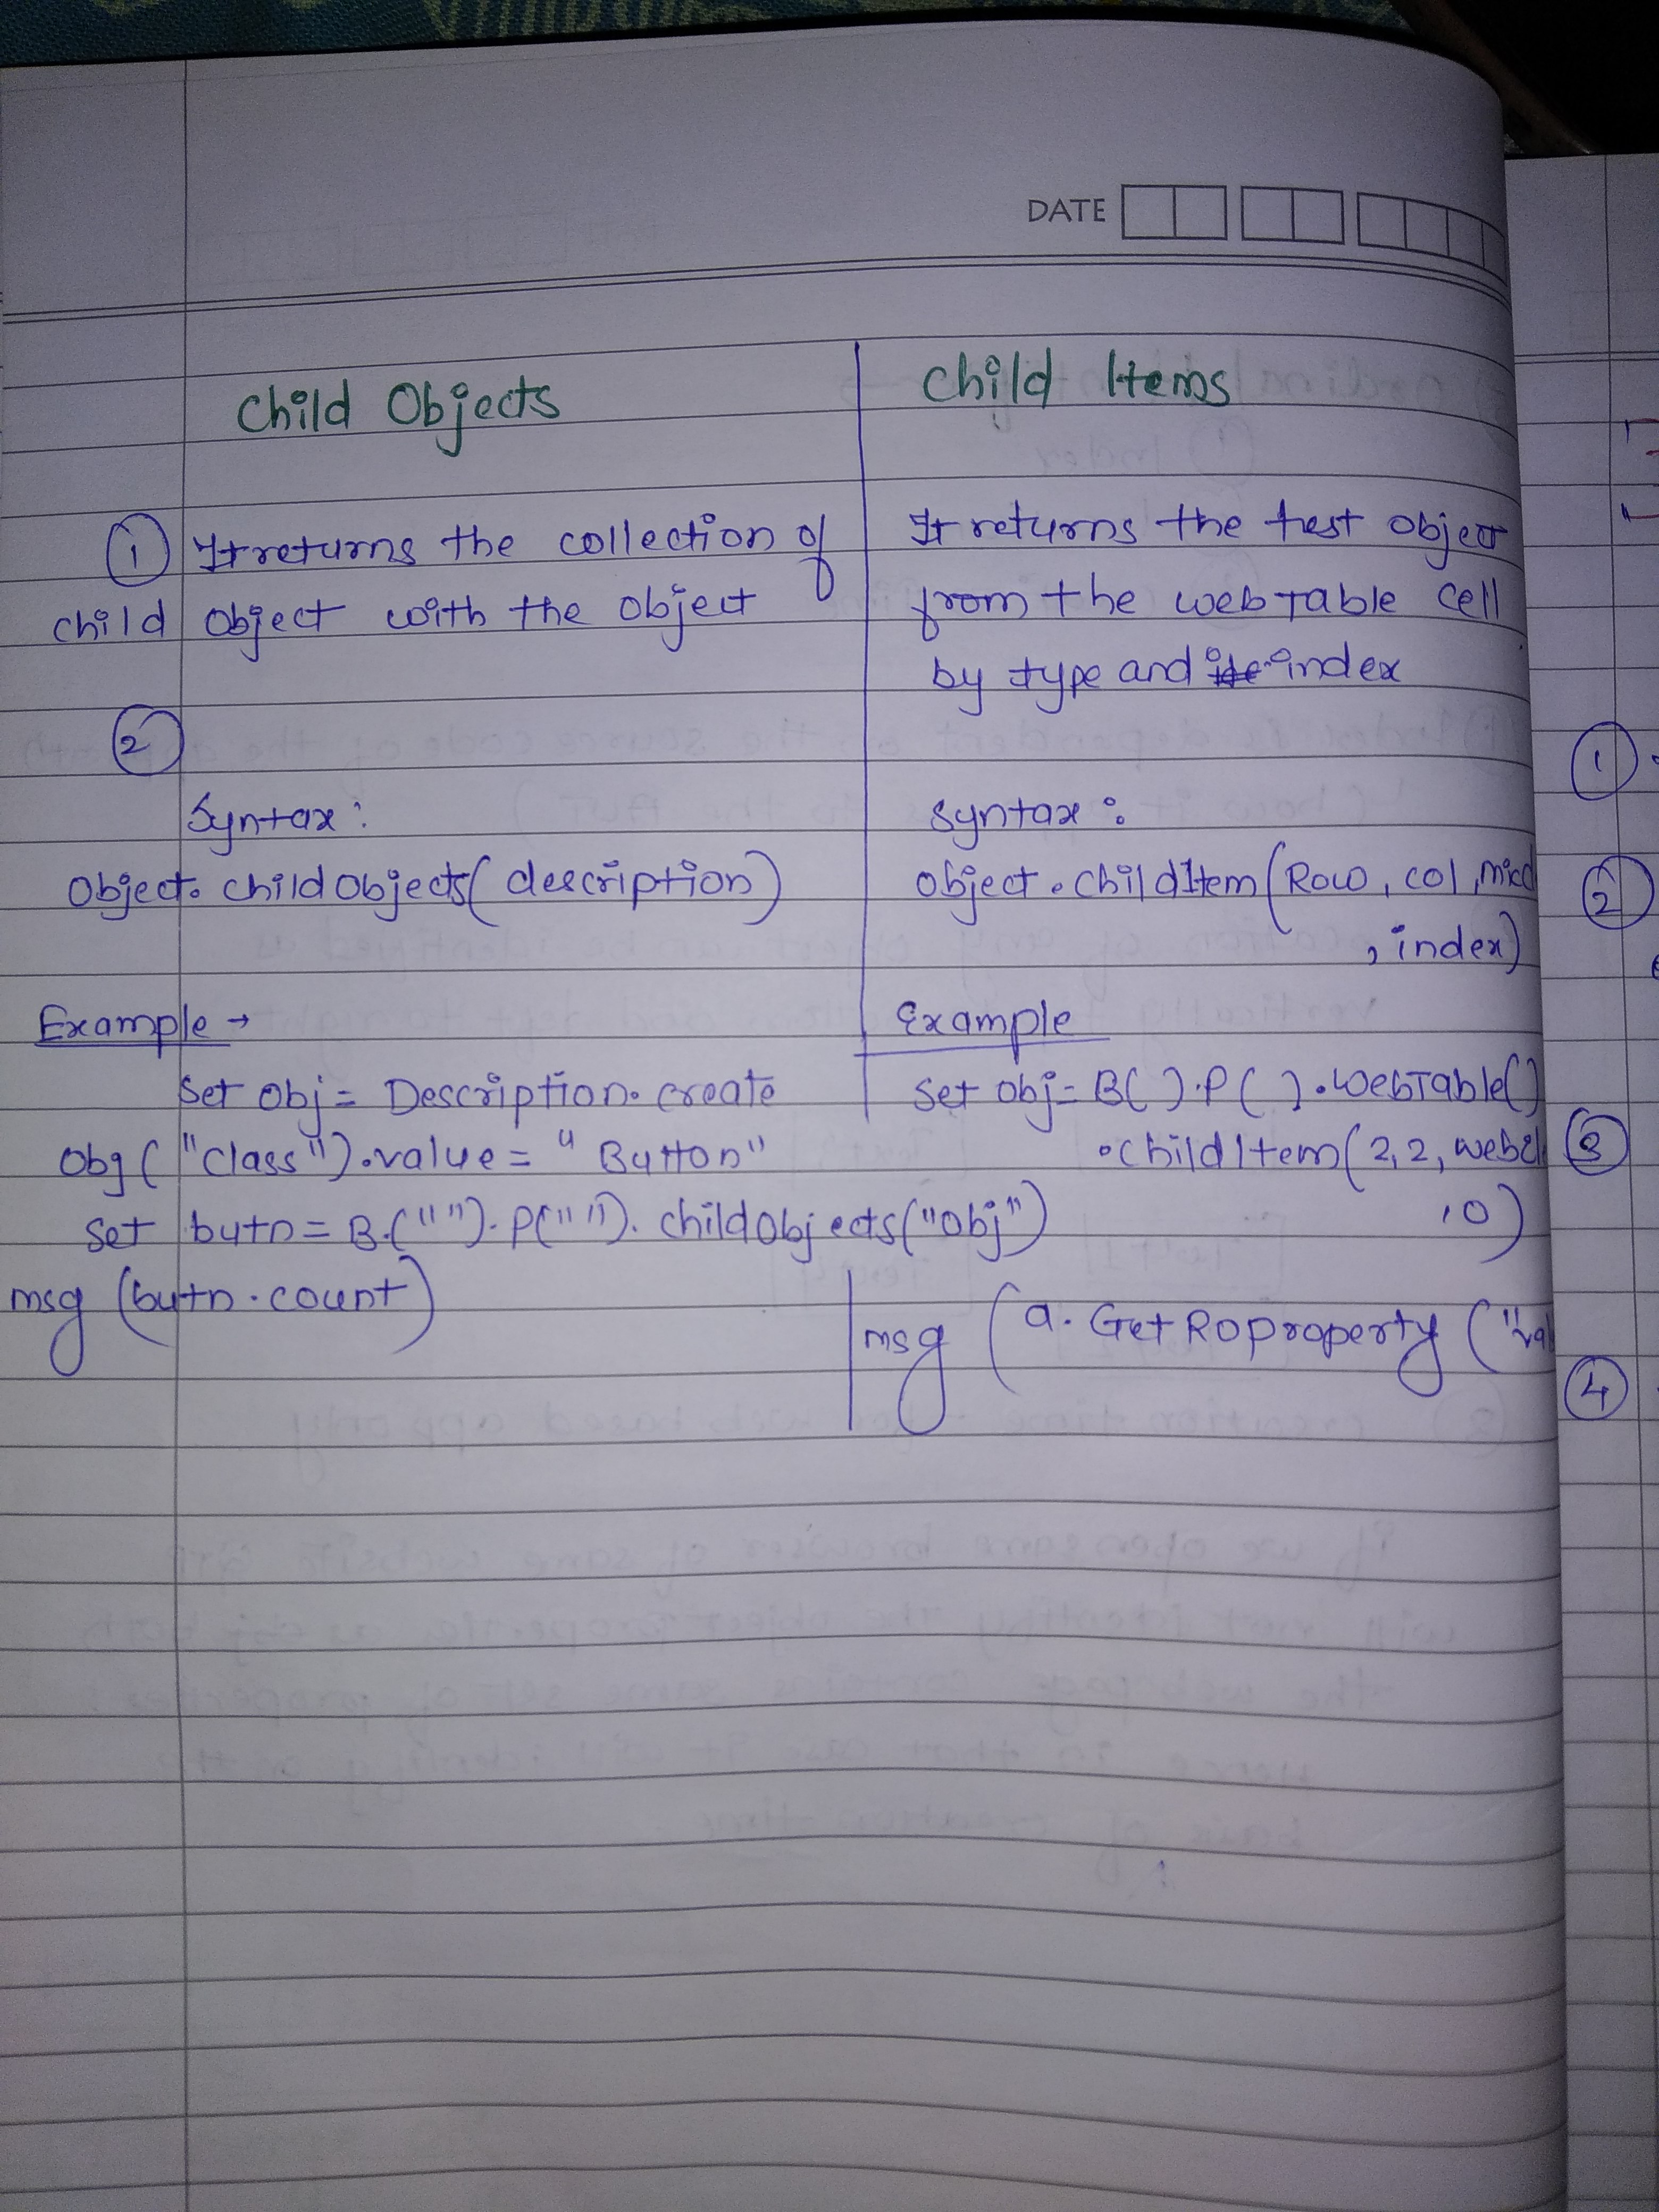 DATE
Child Objects
① It returns the collection of
child object with the object
②
Syntax:
Object. childobjects( description)
Example →
Set obj = Description. create
Obg ( "class").value = " Button"
Set butn = B.(" "). P(" "). childobjects("obj")
msg (butn.count)
Child Items
It returns the test object
from the webTable cell
by type and index
Syntax :
object . childItem (Row, col, micc
, index)
Example
Set obj = B( ).P( ).webTable()
.childItem(2,2,
,0)
msg (a. Get Roproperty ("va
①
②
③
④